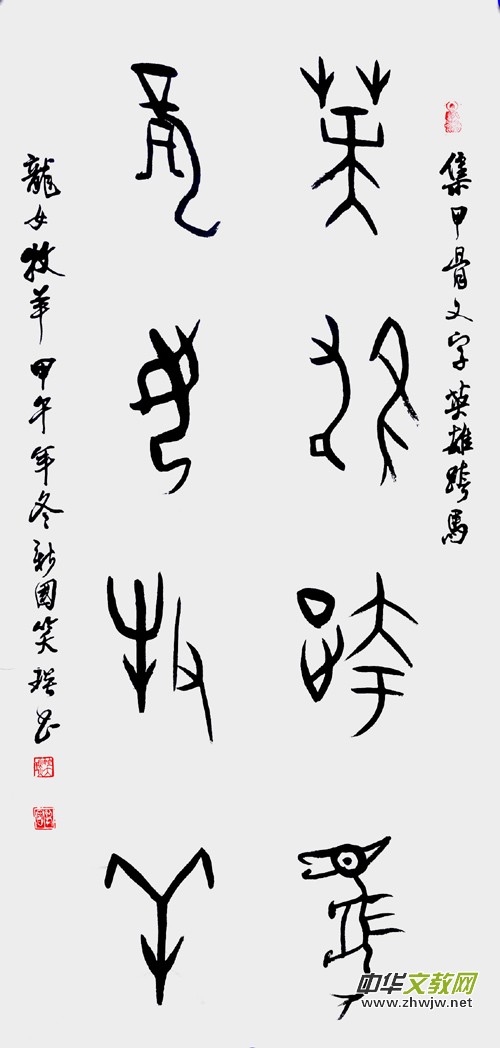 集甲骨文字英雄跨馬
英雄跨馬
龍女牧羊
龍女牧羊甲午年冬國笑書
中华文教网
www.zhwjw.net